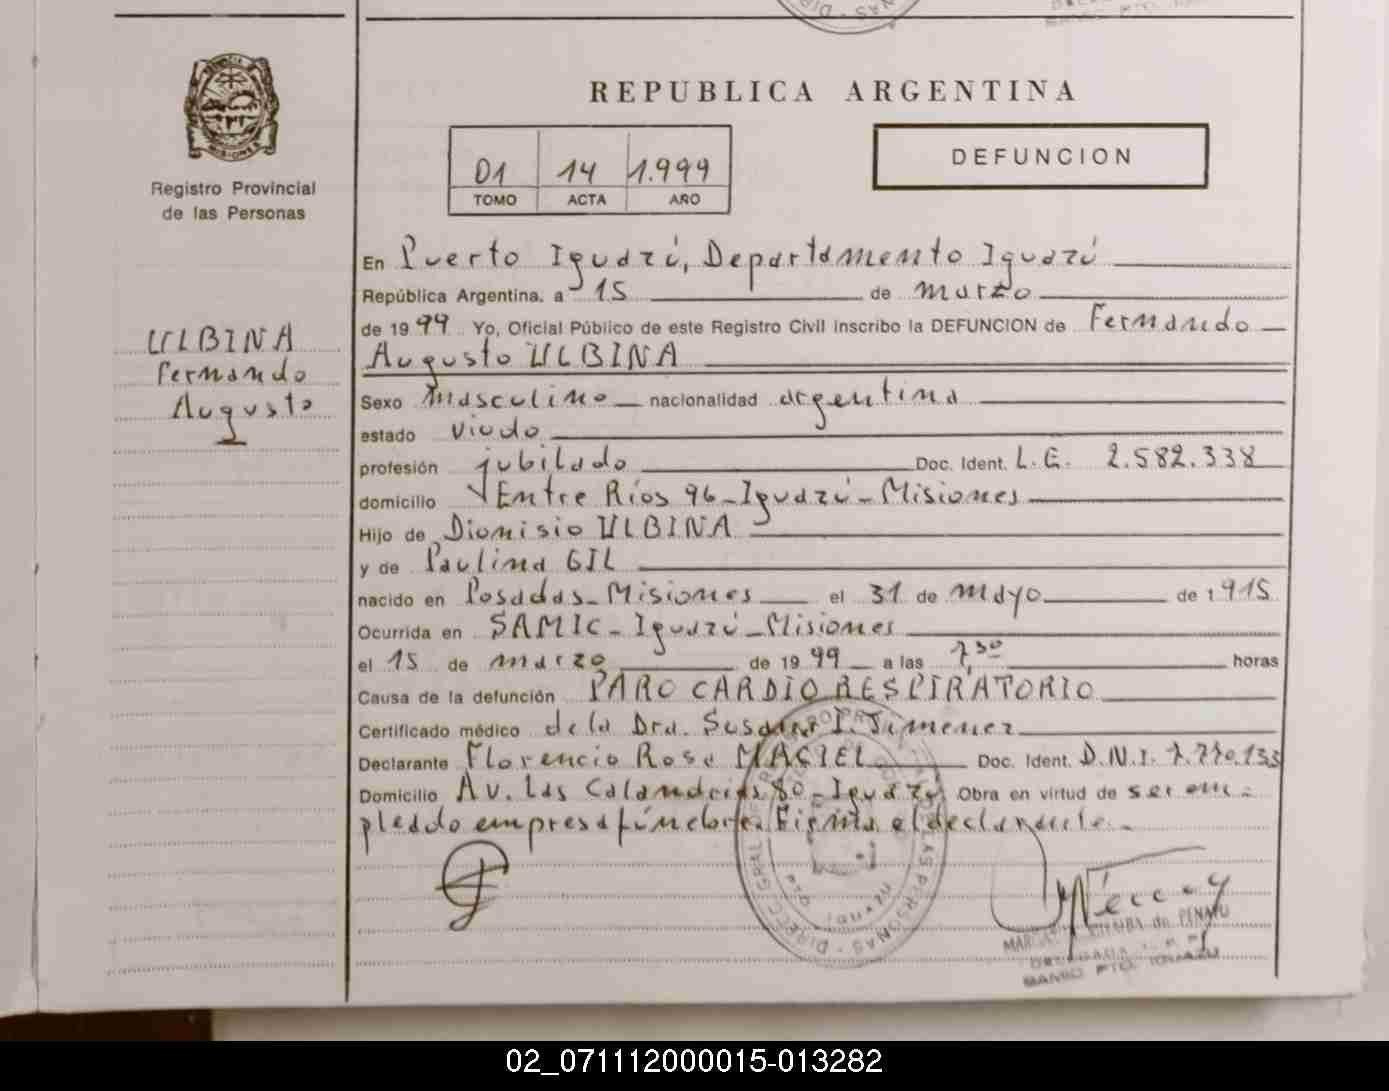 REPUBLICA ARGENTINA
DEFUNCION
01 14 1.999
TOMO ACTA AÑO
Registro Provincial
de las Personas
ULBINA
Fernando
Augusto
En Puerto Iguazú, Departamento Iguazú
República Argentina, a 15 de marzo
de 1999 Yo, Oficial Público de este Registro Civil inscribo la DEFUNCION de Fernando
Augusto ULBINA
Sexo masculino nacionalidad argentina
estado viudo
profesión jubilado Doc. Ident. L.E. 2.582.338
domicilio Entre Ríos 96-Iguazú-Misiones
Hijo de Dionisio ULBINA
y de Paulina GIL
nacido en Posadas-Misiones el 31 de mayo de 1915
Ocurrida en SAMIC-Iguazú-Misiones
el 15 de marzo de 1999 a las 7,30 horas
Causa de la defunción PARO CARDIO RESPIRATORIO
Certificado médico de la Dra. Susana I. Jimenez
Declarante Florencio Rosa MACIEL Doc. Ident. D.N.I. 7.770.133
Domicilio Av. Las Calandrias 80-Iguazú Obra en virtud de ser em-
pleado empresa fúnebre. Firma el declarante.-
DIREC. GRAL. DE LAS PERSONAS
IGUAZU
de PENAYO
PTO. IGUAZU
02_071112000015-013282